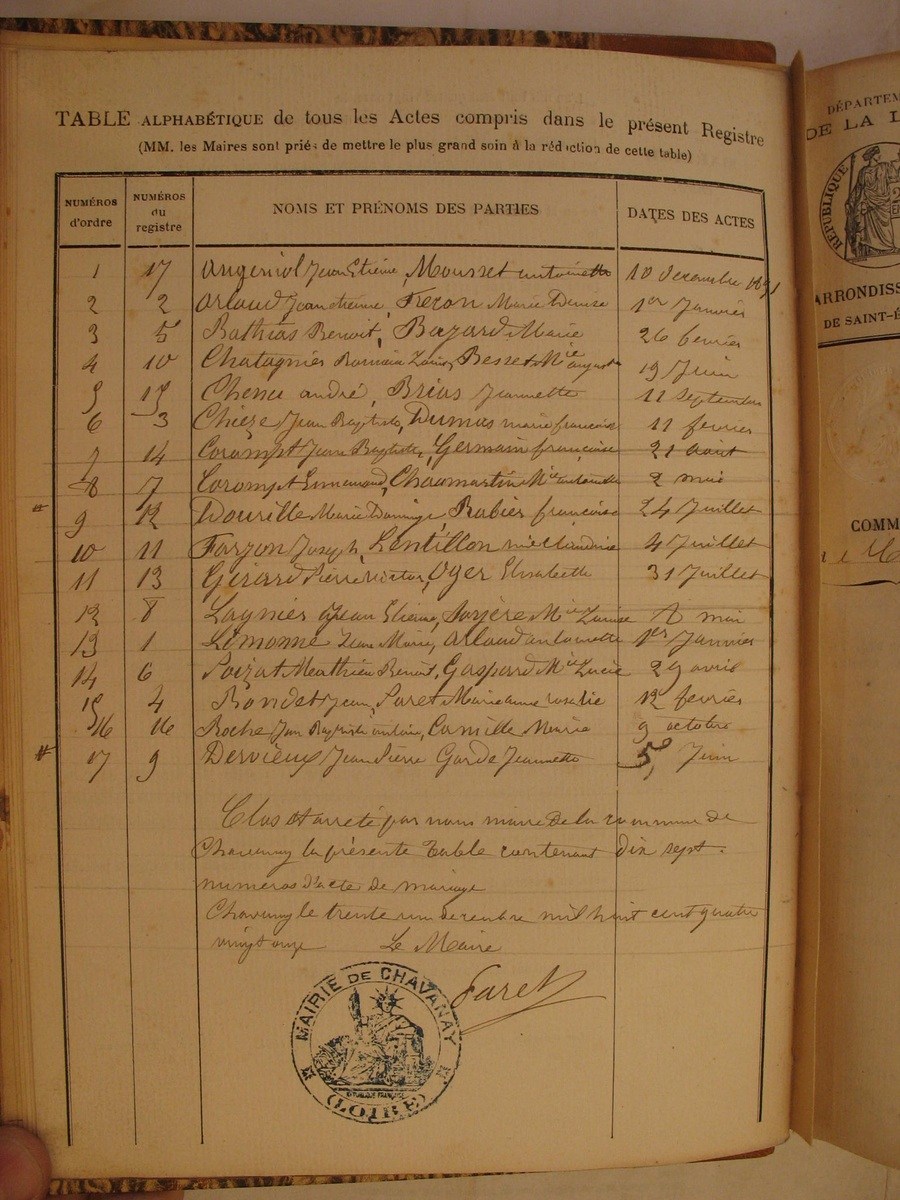 TABLE ALPHABÉTIQUE de tous les Actes compris dans le présent Registre
(MM. les Maires sont priés de mettre le plus grand soin à la rédaction de cette table)
NUMÉROS d'ordre NUMÉROS du registre NOMS ET PRÉNOMS DES PARTIES DATES DES ACTES
1 17 Angeniol Jean Etienne, Mousset antoinette 10 decembre 1891
2 2 Arlaud Jean etienne, Frezon Marie Denise 1er Janvier
3 5 Bathias Benoit, Bazard Marie 26 fevrier
4 10 Chatagnier Romain Louis, Besset Mie august 19 Juin
5 15 Chenu andré, Brias Jeannette 11 Septembre
6 3 Chièze Jean Baptiste, Dumas marie francoise 11 fevrier
7 14 Corompt Jean Baptiste, Germain françoise 21 aout
8 7 Corompt, Chaumartin Mie antoinette 2 mai
# 9 12 Dourille Marie Dominique Rabier françoise 24 Juillet
10 11 Farzon Joseph, Lentillon mie Claudine 4 Juillet
11 13 Gerard Pierre victor, Oger Elisabette 31 Juillet
12 8 Lagnier Jean Etienne, Mie Louise mai
13 1 Lemonne Jean Marie, Arlaud antoinette 1er Janvier
14 6 Poizat Matthieu Benoit, Gaspard Mie Lucie 29 avril
15 4 Rondet Jean, Paret Marie anne rosalie 12 fevrier
16 16 Roche Jean Baptiste antoine, Camille Marie 9 octobre
# 17 9 Dervieux Jean Pierre Garde Jeannette 5, Juin
Clos et arreté par nous maire de la commune de
Chavanay la présente Table contenant dix sept.
numeros d'acte de mariage
Chavanay le trente un decembre mil huit cent quatre
vingt onze Le Maire
Faret
MAIRIE DE CHAVANAY
RÉPUBLIQUE FRANÇAISE
(LOIRE)
DÉPARTEM
DE LA L
RÉPUBLIQUE
ARRONDISS
DE SAINT-É
COMM